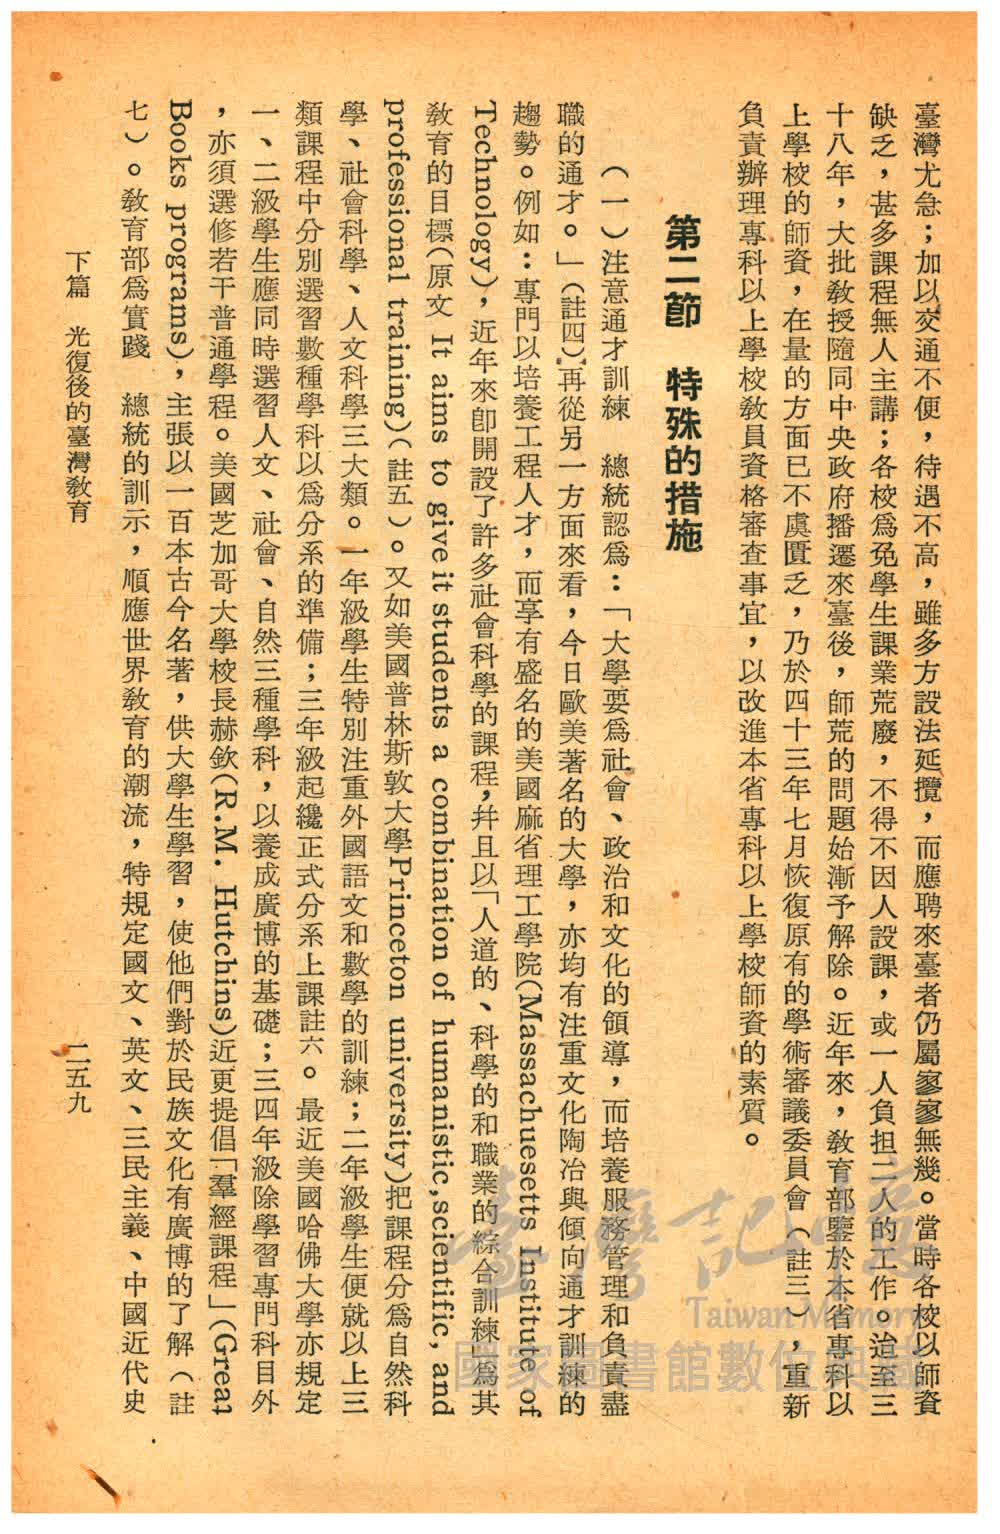 臺灣尤急；加以交通不便，待遇不高，雖多方設法延攬，而應聘來臺者仍屬寥寥無幾。當時各校以師資
缺乏，甚多課程無人主講；各校為免學生課業荒廢，不得不因人設課，或一人負担二人的工作。迨至三
十八年，大批教授隨同中央政府播遷來臺後，師荒的問題始漸予解除。近年來，教育部鑒於本省專科以
上學校的師資，在量的方面已不虞匱乏，乃於四十三年七月恢復原有的學術審議委員會（註三），重新
負責辦理專科以上學校教員資格審查事宜，以改進本省專科以上學校師資的素質。
第二節　特殊的措施
（一）注意通才訓練　總統認為：「大學要為社會、政治和文化的領導，而培養服務管理和負責盡
職的通才。」（註四）再從另一方面來看，今日歐美著名的大學，亦均有注重文化陶冶與傾向通才訓練的
趨勢。例如：專門以培養工程人才，而享有盛名的美國麻省理工學院(Massachuesetts Institute of
Technology)，近年來卽開設了許多社會科學的課程，幷且以「人道的、科學的和職業的綜合訓練」為其
教育的目標（原文 It aims to give it students a combination of humanistic,scientific, and
professional training)（註五）。又如美國普林斯敦大學Princeton university)把課程分為自然科
學、社會科學、人文科學三大類。一年級學生特別注重外國語文和數學的訓練；二年級學生便就以上三
類課程中分別選習數種學科以為分系的準備；三年級起纔正式分系上課註六。最近美國哈佛大學亦規定
一、二級學生應同時選習人文、社會、自然三種學科，以養成廣博的基礎；三四年級除學習專門科目外
，亦須選修若干普通學程。美國芝加哥大學校長赫欽(R.M. Hutchins)近更提倡「羣經課程」(Great
Books programs)，主張以一百本古今名著，供大學生學習，使他們對於民族文化有廣博的了解（註
七）。教育部為實踐　總統的訓示，順應世界教育的潮流，特規定國文、英文、三民主義、中國近代史
下篇　光復後的臺灣教育
二五九
臺灣記憶
Taiwan Memory
國家圖書館數位典藏